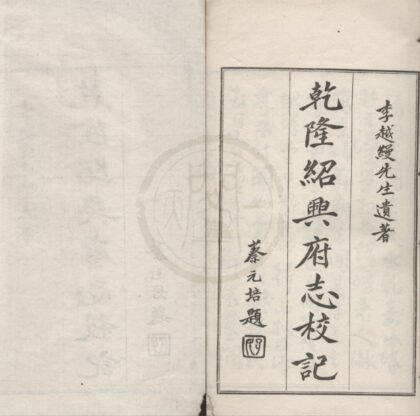 李越縵先生遺著
乾隆紹興府志校記
蔡元培題